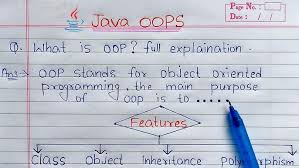 Page No.:
Date: / /
Java OOPS
Q. What is OOP? full explaination.
Ans→ OOP stands for object oriented
programming, the main purpose
of OOP is to .....
Features
Class Object Inheritance Polymorphism